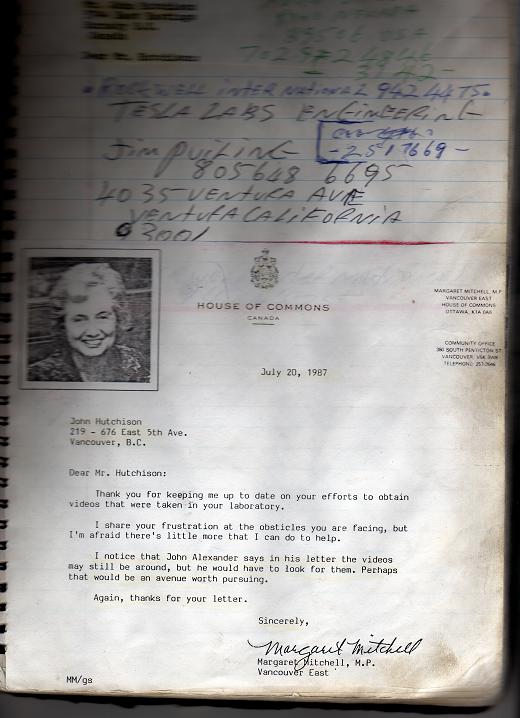 702 972 4846
ROCKWELL INTERNATIONAL 942 44 TS.
TESLA LABS ENGINEERING
JIM
-2517669-
805 648 6695
4035 VENTURA AVE
VENTURA CALIFORNIA
93001
HOUSE OF COMMONS
CANADA
MARGARET MITCHELL, M.P.
VANCOUVER EAST
HOUSE OF COMMONS
OTTAWA, K1A 0A6
COMMUNITY OFFICE
SOUTH PENTICTON ST
VANCOUVER,
TELEPHONE:
July 20, 1987
John Hutchison
219 - 676 East 5th Ave.
Vancouver, B.C.
Dear Mr. Hutchison:
Thank you for keeping me up to date on your efforts to obtain
videos that were taken in your laboratory.
I share your frustration at the obsticles you are facing, but
I'm afraid there's little more that I can do to help.
I notice that John Alexander says in his letter the videos
may still be around, but he would have to look for them. Perhaps
that would be an avenue worth pursuing.
Again, thanks for your letter.
Sincerely,
Margaret Mitchell
Margaret Mitchell, M.P.
Vancouver East
MM/gs